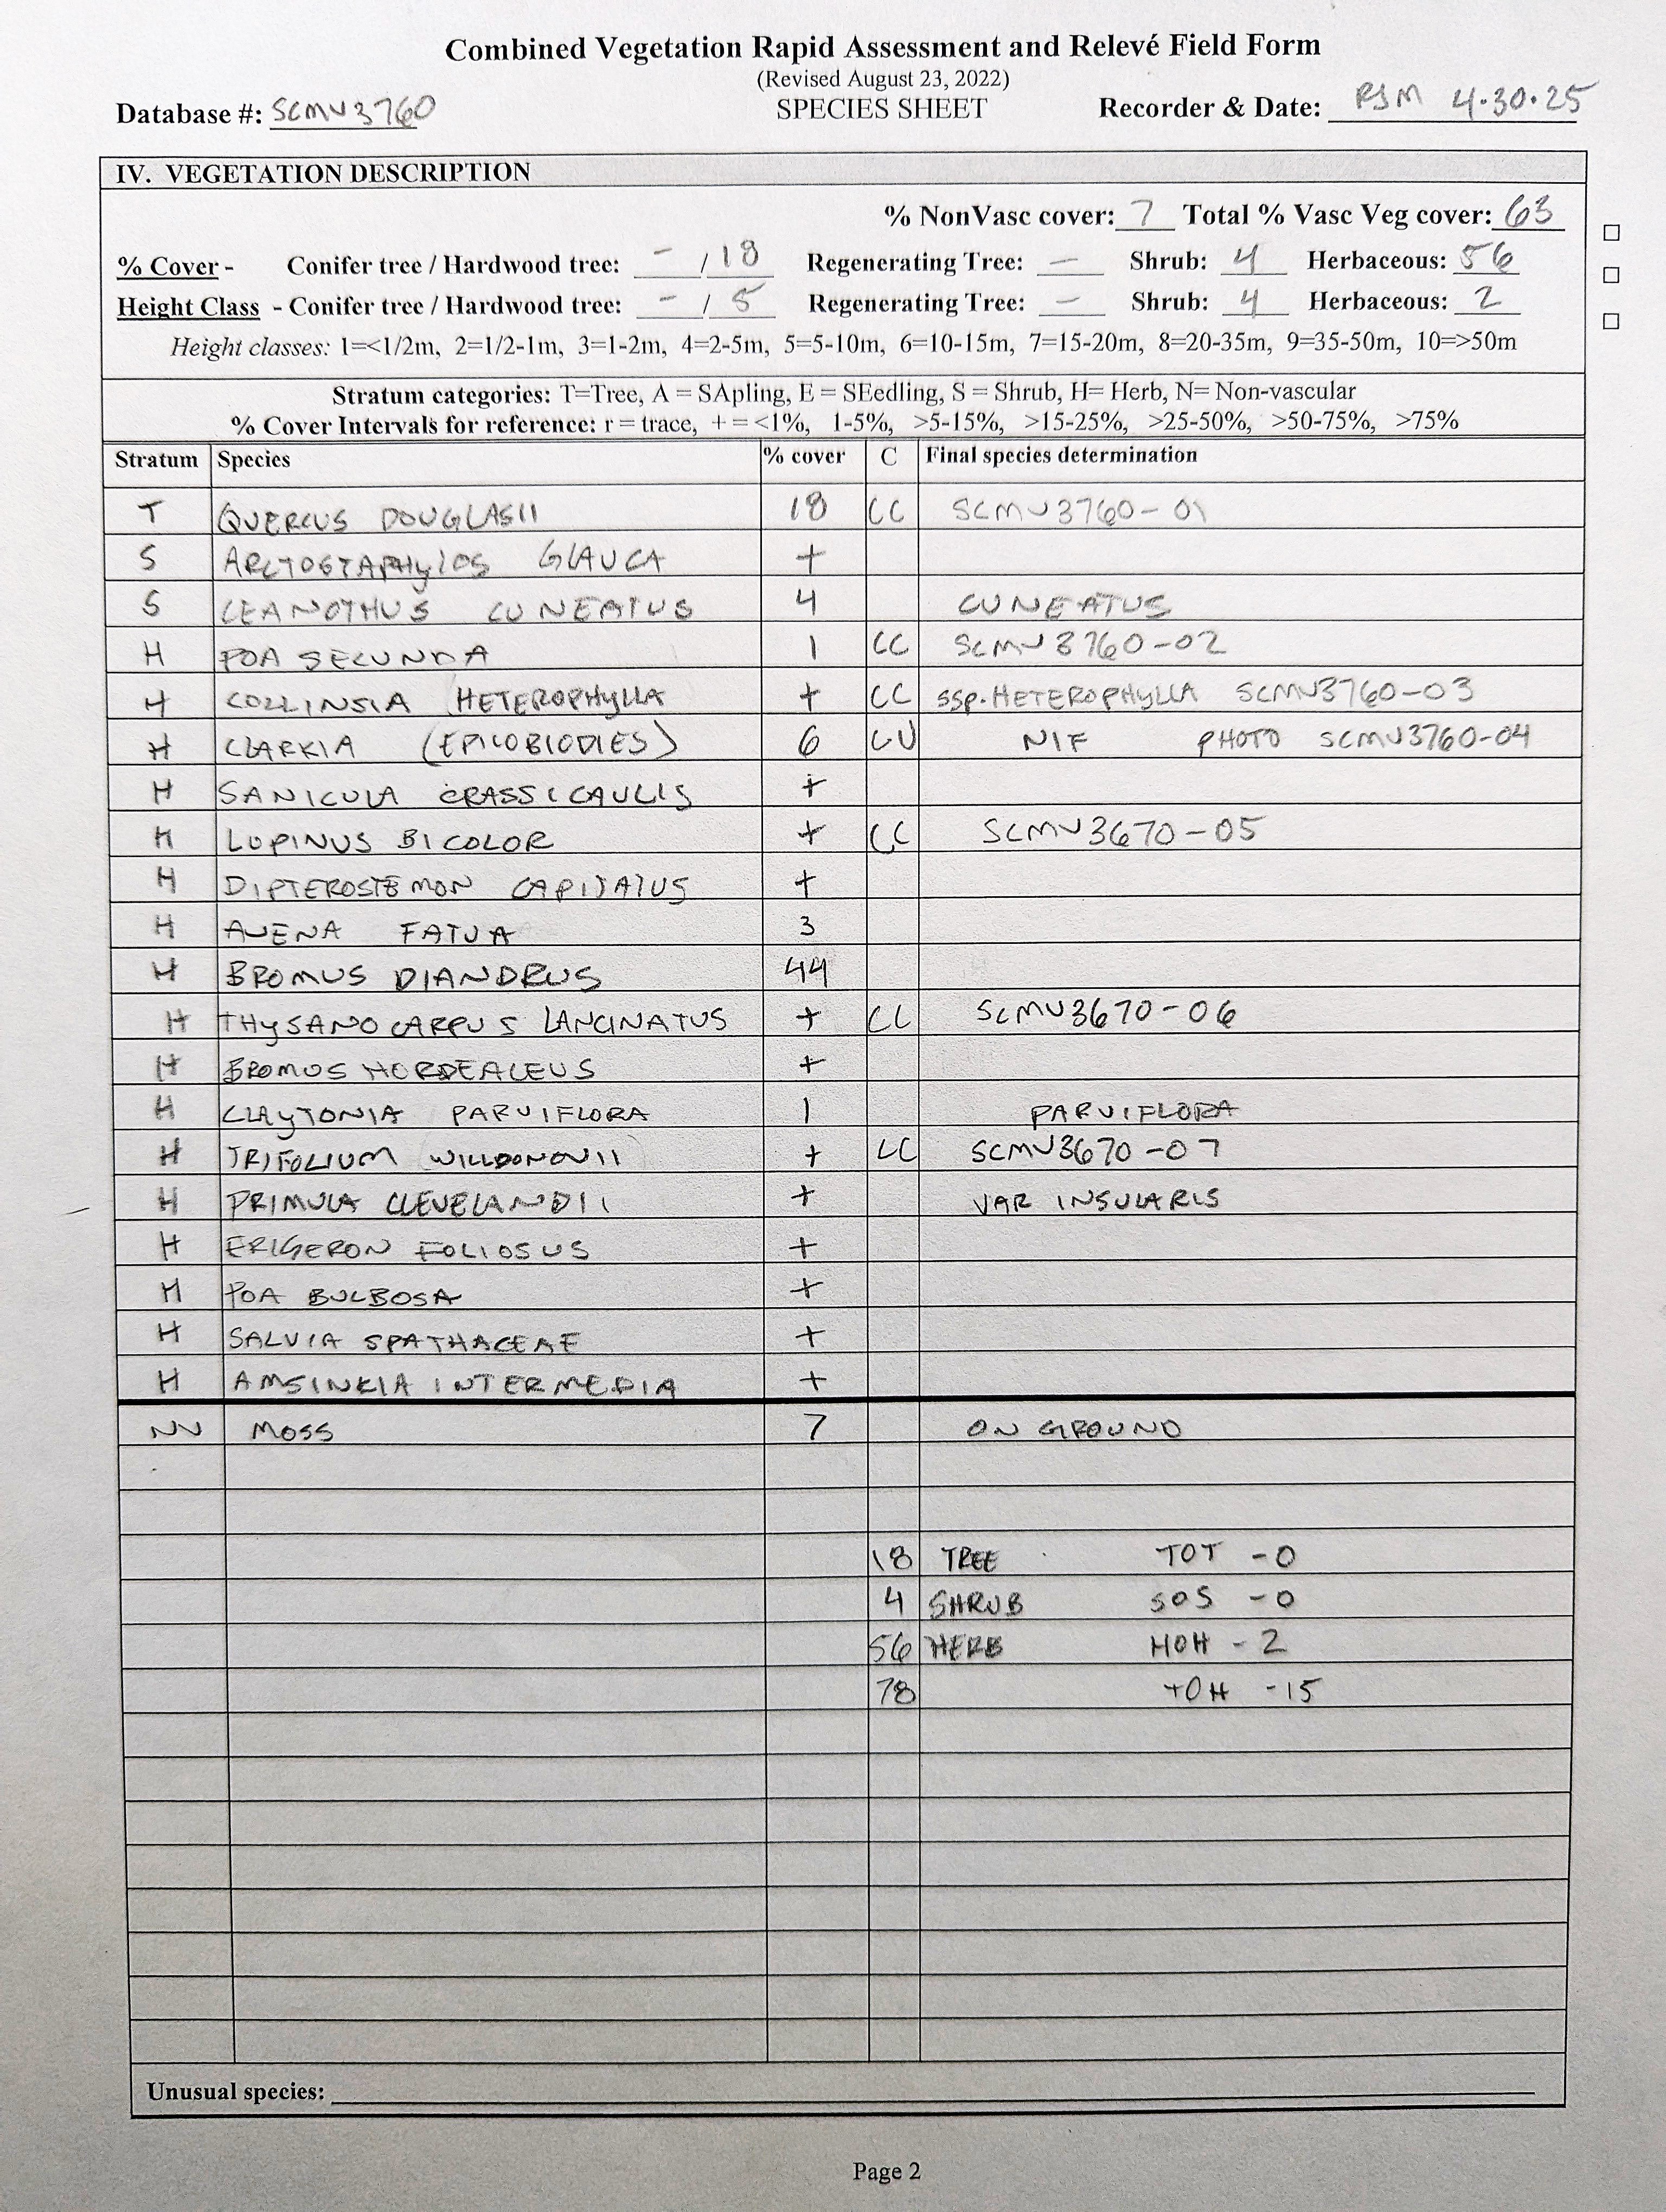 Combined Vegetation Rapid Assessment and Relevé Field Form
(Revised August 23, 2022)
Database #: SCMV3760 SPECIES SHEET Recorder & Date: RJM 4.30.25
IV. VEGETATION DESCRIPTION
% NonVasc cover: 7 Total % Vasc Veg cover: 63
% Cover - Conifer tree / Hardwood tree: - / 18 Regenerating Tree: — Shrub: 4 Herbaceous: 56
Height Class - Conifer tree / Hardwood tree: - / 5 Regenerating Tree: — Shrub: 4 Herbaceous: 2
Height classes: 1=<1/2m, 2=1/2-1m, 3=1-2m, 4=2-5m, 5=5-10m, 6=10-15m, 7=15-20m, 8=20-35m, 9=35-50m, 10=>50m
Stratum categories: T=Tree, A = SApling, E = SEedling, S = Shrub, H= Herb, N= Non-vascular
% Cover Intervals for reference: r = trace, + = <1%, 1-5%, >5-15%, >15-25%, >25-50%, >50-75%, >75%
Stratum Species % cover C Final species determination
T QUERCUS DOUGLASII 18 CC SCMV3760-01
S ARCTOSTAPHYLOS GLAUCA +
S CEANOTHUS CUNEATUS 4 CUNEATUS
H POA SECUNDA 1 CC SCMV3760-02
H COLLINSIA HETEROPHYLLA + CC SSP. HETEROPHYLLA SCMV3760-03
H CLARKIA (EPILOBIODIES) 6 CU NIF PHOTO SCMV3760-04
H SANICULA CRASSICAULIS +
H LUPINUS BICOLOR + CC SCMV3670-05
H DIPTEROSTEMON CAPITATUS +
H AVENA FATUA 3
H BROMUS DIANDRUS 44
H THYSANOCARPUS LANCINATUS + CC SCMV3670-06
H BROMUS HORDEACEUS +
H CLAYTONIA PARVIFLORA 1 PARVIFLORA
H TRIFOLIUM WILLDONOVII + CC SCMV3670-07
H PRIMULA CLEVELANDII + VAR INSULARIS
H ERIGERON FOLIOSUS +
H POA BULBOSA +
H SALVIA SPATHACEAE +
H AMSINKIA INTERMEDIA +
NV MOSS 7 ON GROUND
18 TREE TOT - 0
4 SHRUB SOS - 0
56 HERB HOH - 2
78 TOH - 15
Unusual species:
Page 2